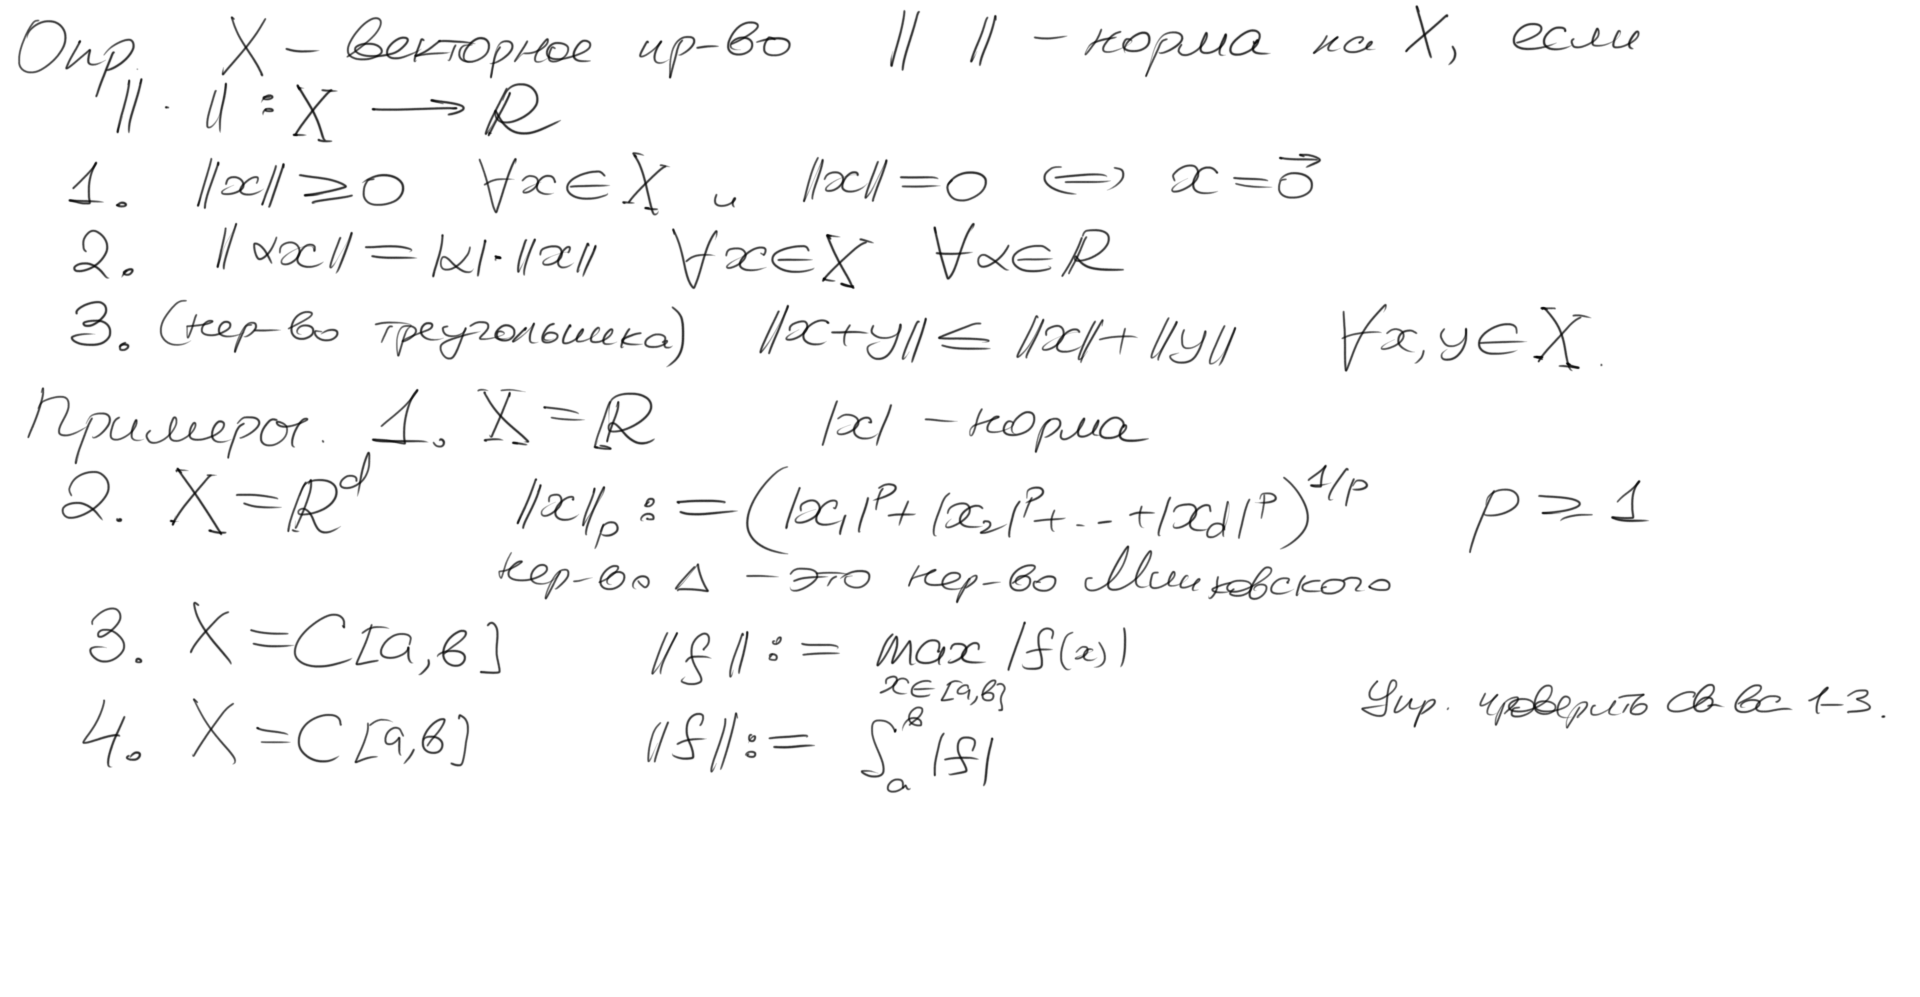 Опр. X – векторное пр-во ‖ ‖ – норма на X, если
‖·‖ : X ⟶ ℝ
1. ‖x‖ ⩾ 0 ∀x∈X и ‖x‖ = 0 ⇔ x = 0⃗
2. ‖αx‖ = |α|·‖x‖ ∀x∈X ∀α∈ℝ
3. (нер-во треугольника) ‖x+y‖ ≤ ‖x‖ + ‖y‖ ∀x, y ∈ X.
Примеры. 1. X = ℝ |x| – норма
2. X = ℝᵈ ‖x‖ₚ := (|x₁|ᵖ + |x₂|ᵖ + ... + |x_d|ᵖ)^{1/p} p ⩾ 1
нер-во Δ – это нер-во Минковского
3. X = C[a,b] ‖f‖ := max |f(x)|
x∈[a,b]
Упр. проверить св-ва 1–3.
4. X = C[a,b] ‖f‖ := ∫ₐᵇ |f|